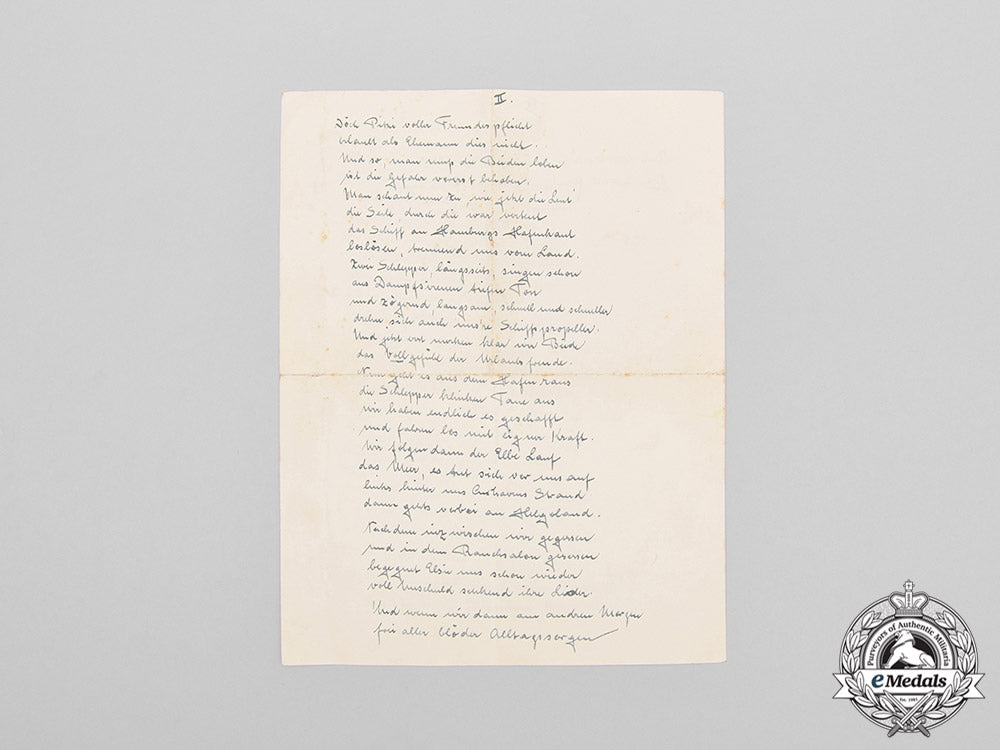 II.
Doch Petri voller Freundespflicht
erlaubt als Ehemann dies nicht.
Und so, man muss die Beiden loben
ist die Gefahr vorerst behoben.
Man schaut nun zu, wie jetzt die Leut'
die Seile, durch die war verteut
das Schiff an Hamburgs Hafenkant
loslösen, trennend uns vom Land.
Zwei Schlepper, längsseits, singen schon
aus Dampfsirenen tiefen Ton
und zögernd, langsam, schnell und schneller
drehn sich auch uns're Schiffspropeller.
Und jetzt erst merken klar wir Beide
das Vollgefühl der Urlaubsfreude.
Nun geht es aus dem Hafen raus
die Schlepper klinken Taue aus
wir haben endlich es geschafft
und fahren los mit eigner Kraft.
Wir folgen dann der Elbe Lauf
das Meer, es tut sich vor uns auf
links hinter uns Cuxhavens Strand
dann gehts vorbei an Helgoland.
Nachdem inzwischen wir gegessen
und in dem Rauchsalon gesessen
begegnet Elsie uns schon wieder
voll Unschuld senkend ihre Lider.
Und wenn wir dann am andren Morgen
frei aller blöder Alltagssorgen
Purveyors of Authentic Militaria
eMedals
Est. 1981